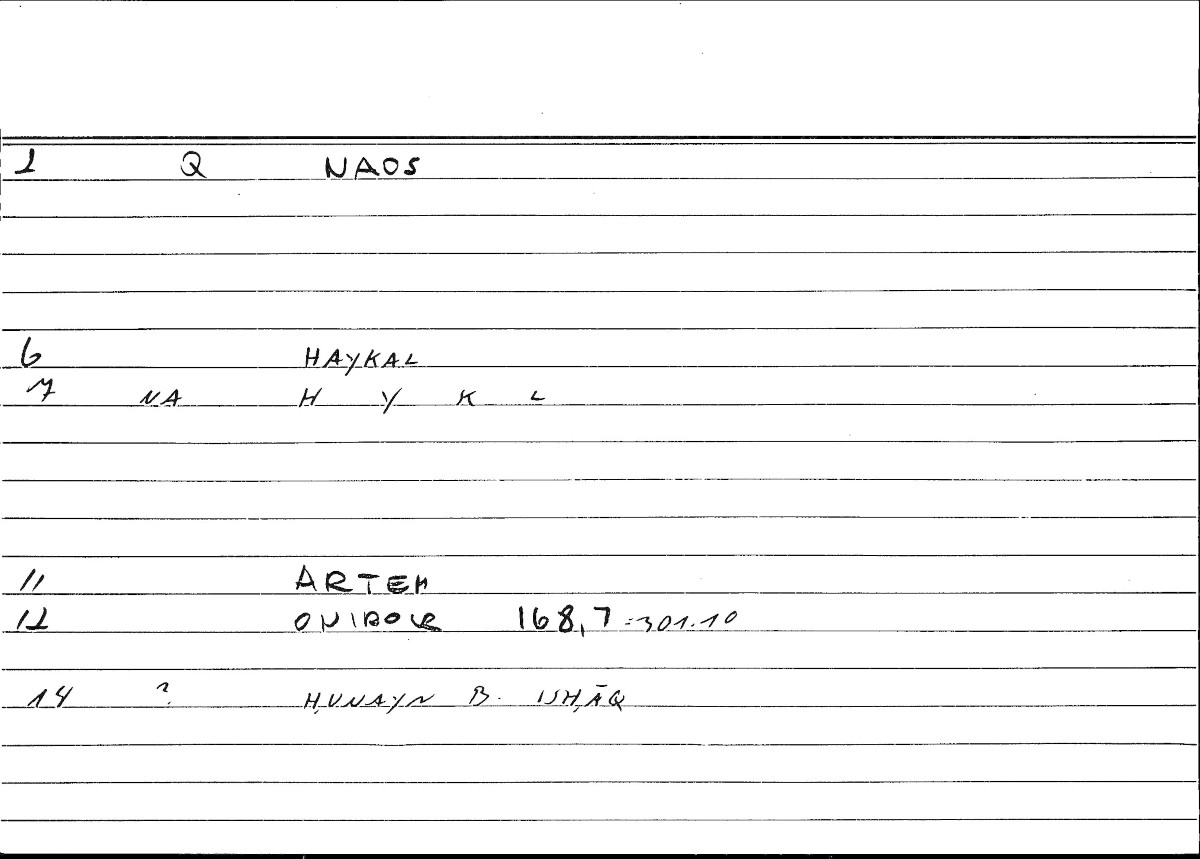 1 Q NAOS
6 HAYKAL
7 NA H Y K L
11 ARTEM
12 ONIROCR 168,7 = 301.10
14 ? ḤUNAYN B. ISḤĀQ